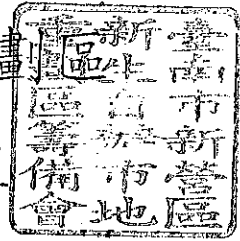 劃區
臺南市新營區
新生自辦市地
重劃區籌備會